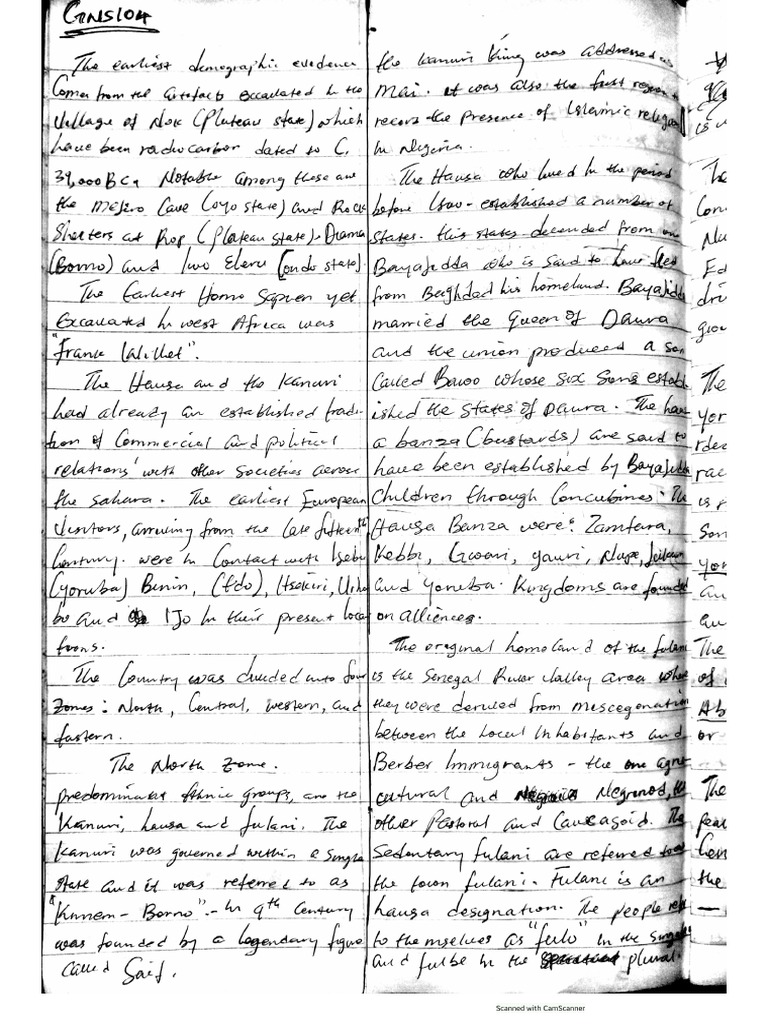 GNS104
The earliest demographic evidence
Comes from the artefacts excavated in the
Village of Nok (Plateau state) which
have been radiocarbon dated to C.
39,000BC. Notable among these are
the Mejiro Cave (oyo state) and Rock
Shelters at Rop (Plateau state). Drama
(Borno) and Iwo Eleru [ondo state].
The Earliest Homo Sapien yet
Excavated in west Africa was
"Frank Willet".
The Hausa and the Kanuri
had already an established tradi-
tion of Commercial and political
relations with other societies across
the sahara. The earliest European
Visitors, arriving from the late fifteenth
Century. were in Contact with Ijebu
(yoruba) Benin, (Edo), Itsekiri, Urho
bo and IJo in their present loca
tions.
The Country was divided into four
Zones: North, Central, western, and
Eastern.
The North Zone.
predominant ethnic groups, are the
Kanuri, hausa and fulani. The
Kanuri was governed within a Single
state and it was referred to as
"Kanem-Borno".- In 9th Century
was founded by a legendary figure
Called Saif.
the Kanuri King was addressed as
Mai. it was also the first
record the presence of Islamic religion
in Nigeria.
The Hausa who lived in the period
before 1800- established a number of
States. this states decended from one
Bayajidda who is said to have fled
from Baghdad his homeland. Bayajidda
married the Queen of Daura
and the union produced a son
Called Bawo whose six Sons establ
ished the States of Daura. The haus
a banza (bustards) are said to
have been established by Bayajidda
Children through Concubines. The
Hausa Banza were: Zamfara,
Kebbi, Gwari, yauri, Nupe,
and yoruba. Kingdoms are founded
on alliences.
The original homeland of the fulani
is the Senegal River Valley area where
they were derived from miscegenation
between the Local inhabitants and
Berber Immigrants - the one agri
cultural and Negriod, the
other Pastoral and Caucasoid. The
Sedentary fulani are referred to as
the town fulani. Fulani is an
hausa designation. The people refer
to themselves as "fulo" in the Singular
and fulbe in the plural.
Scanned with CamScanner